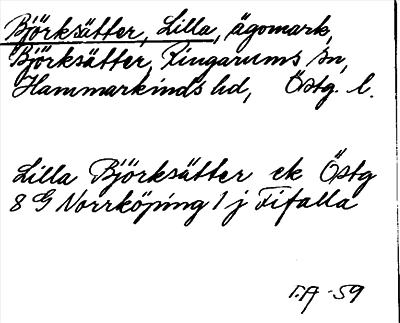 Björksätter, Lilla, ägomark,
Björksätter, Ringarums sn,
Hammarkinds hd, Östg. l.
Lilla Björksätter ek Östg
8 G Norrköping 1 j Fifalla
T.A -59